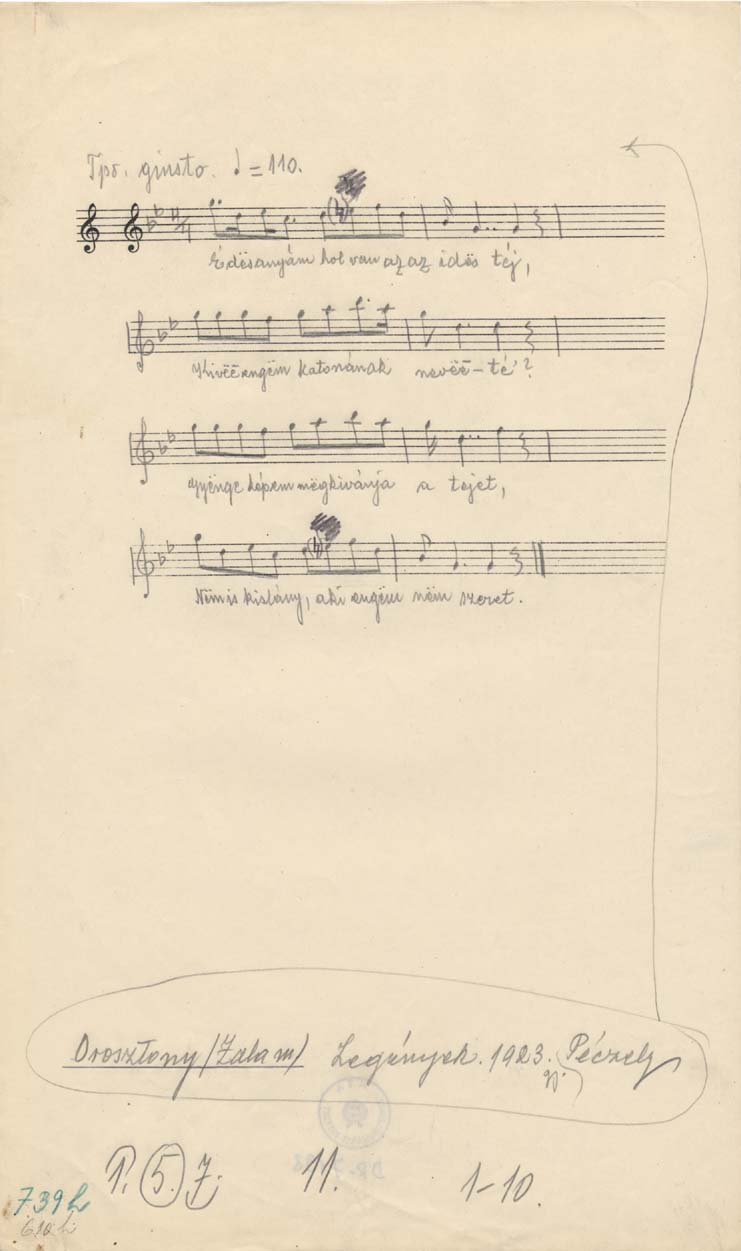 Tpo. giusto. ♩=110.
Édësanyám hol van az az idës téj,
Kivëë engëm katonának nevëë-té'?
Gyënge képem mëgkivánja a tejet,
Nëm is kislány, aki engëm nëm szeret.
Orosztony (Zala m) Legények. 1923. Péczely
gy.
1. 5. 7. 11. 1-10.
739h